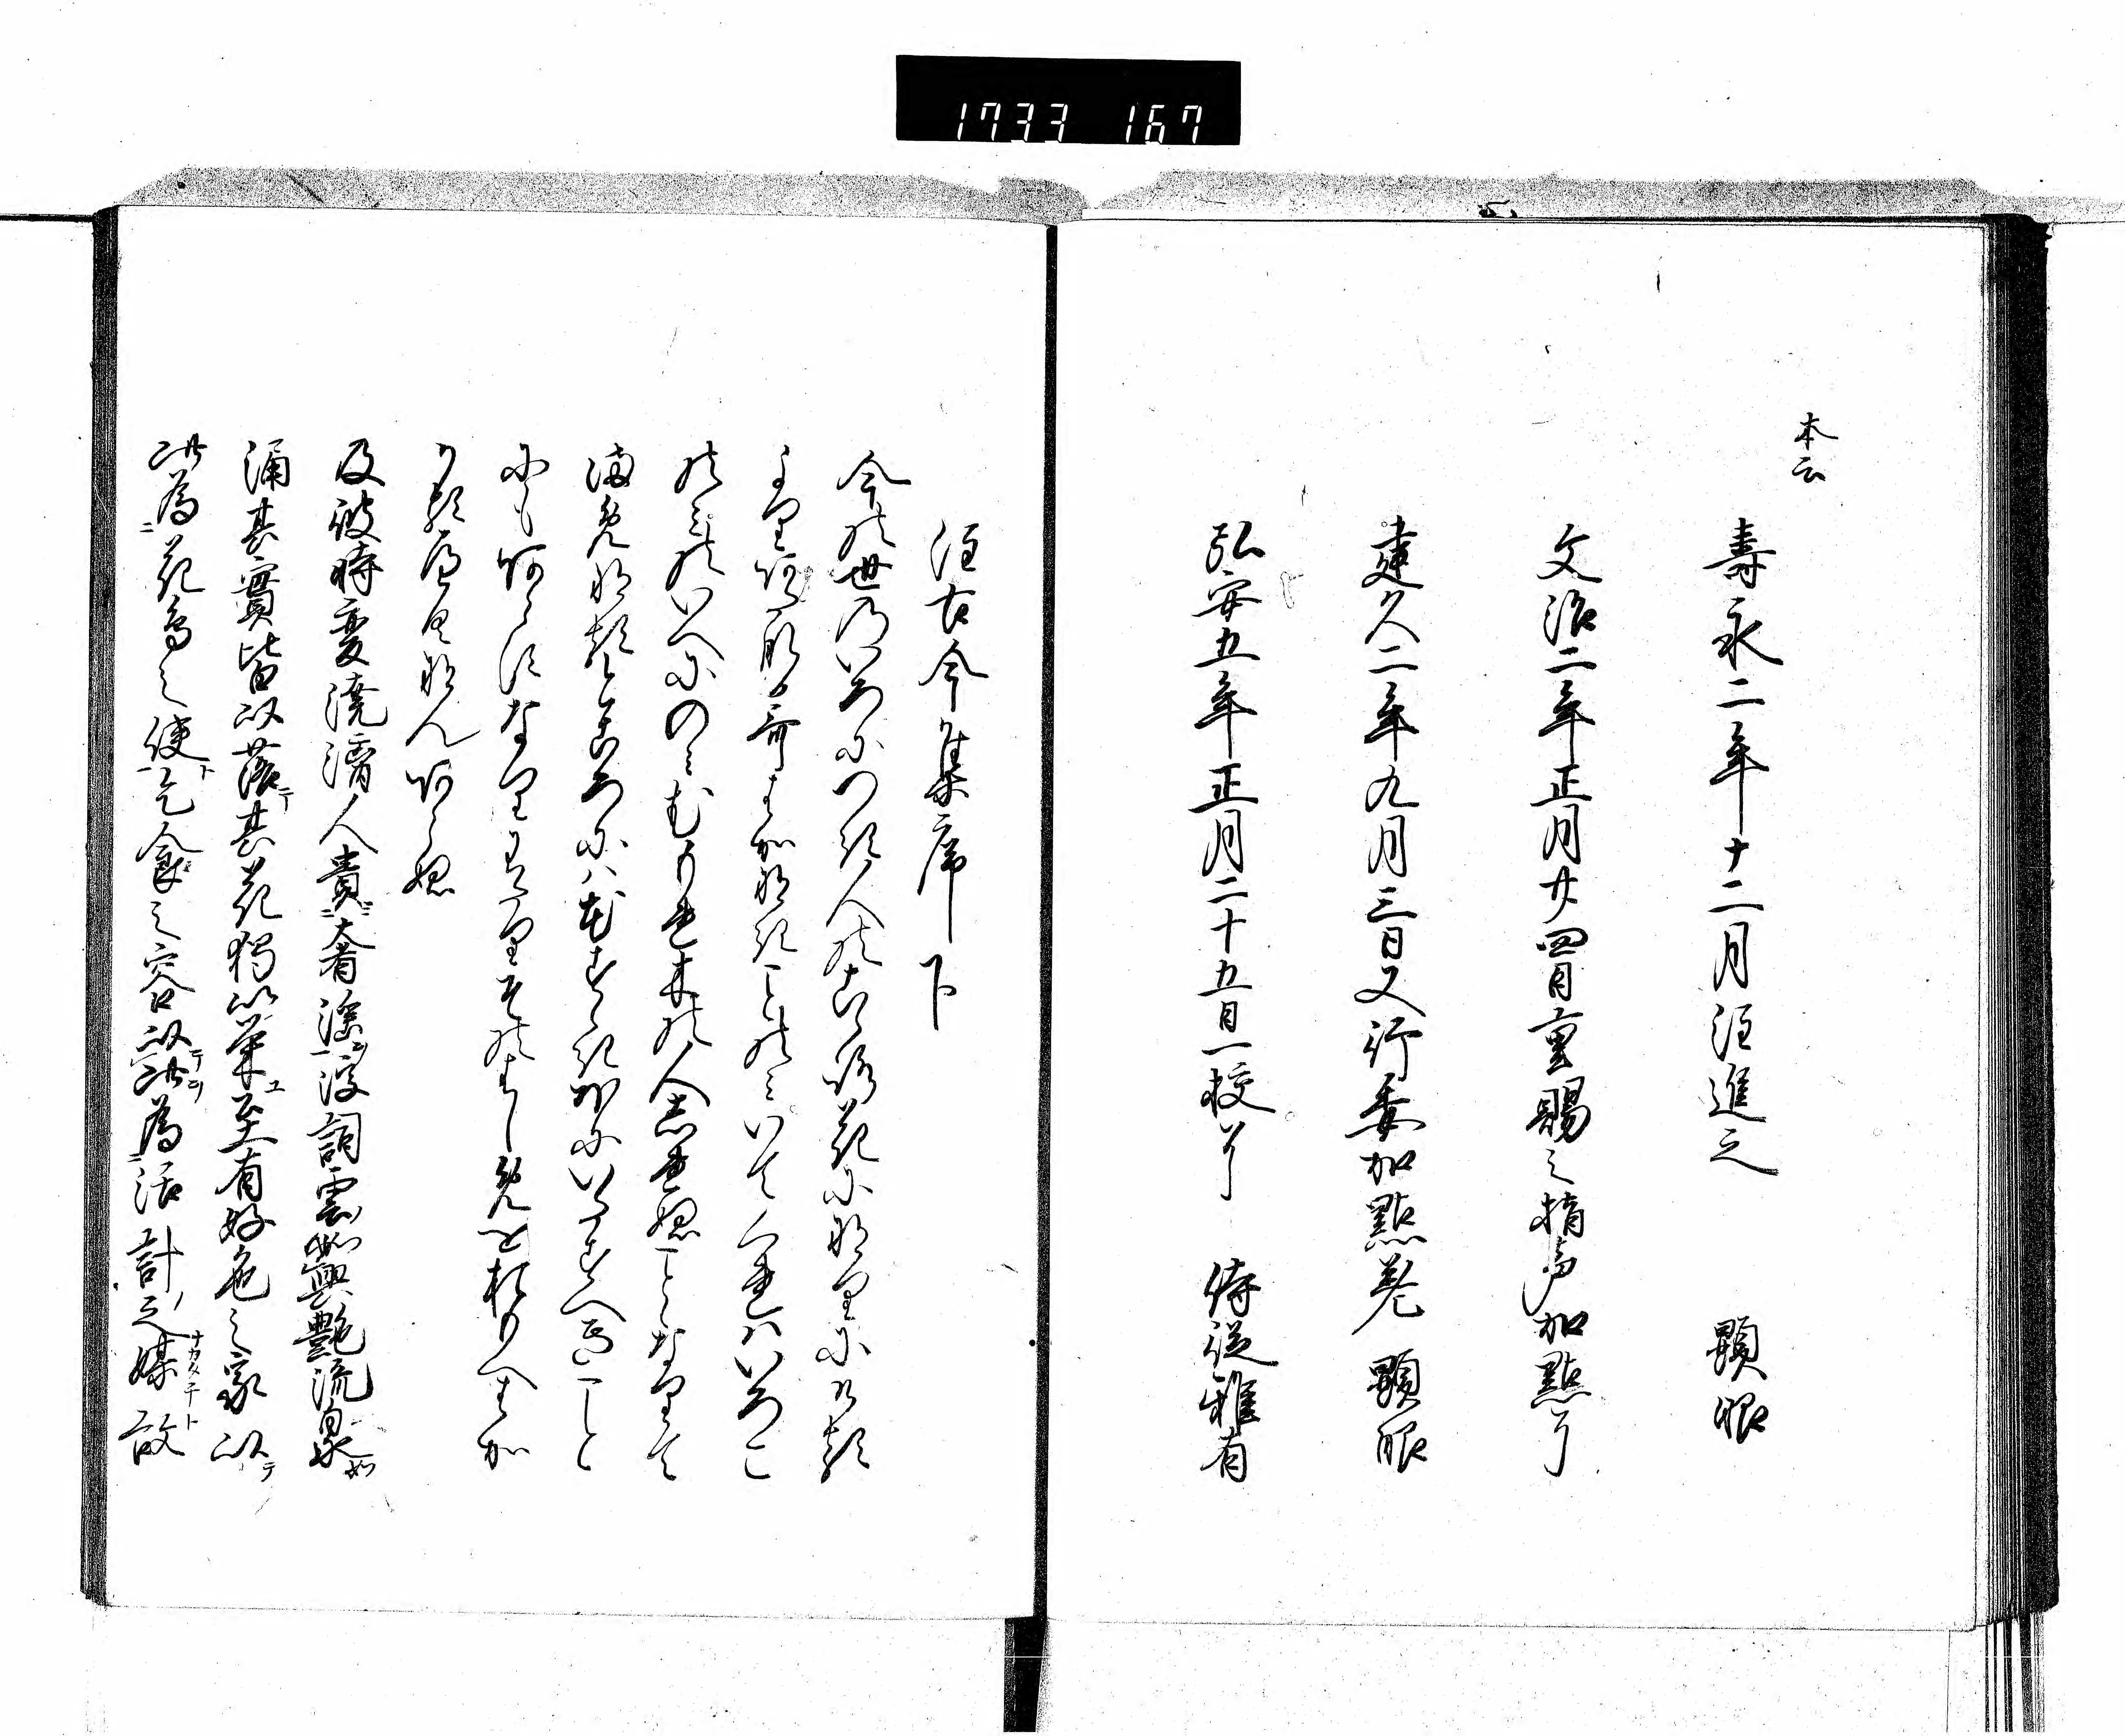 1733 167
本云
壽永二年十二月注進之 顕昭
文治二年正月廿四日重賜之精
加點了
建久二年九月三日又行委加點巻 顕昭
弘安五年正月二十五日一校了 侍従雅有
注古今集序下
今の世の中いろにつき人のこゝろ花になりにける
よりあたなる哥はかなきことのみいてくれはいろこ
のみのいへにのみむもれ木の人しれぬことゝなりて
まめなるところにははなすゝきほにいたすへきこと
にもあらすなりにたりそのはしめをおもへはかゝ
るへくなんあらぬ
及彼時変澆漓人貴奢淫浮詞雲興艶流泉
涌其實皆以落其花獨以榮至有好色之家以
此為花鳥之使乞食之客以此為活計之媒故